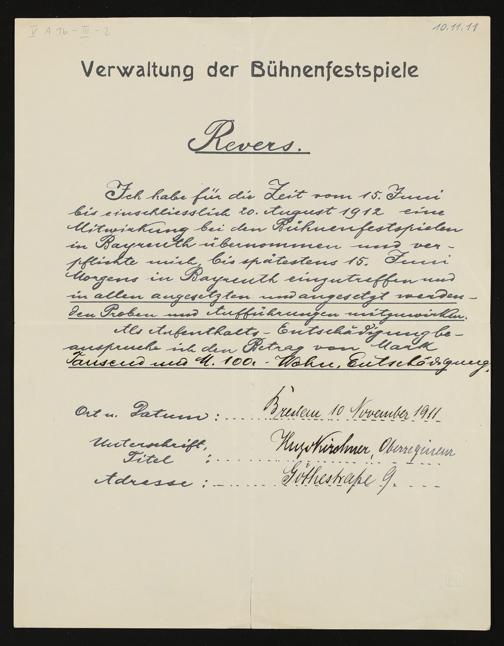 V A 16 - III - 2
10.11.11
Verwaltung der Bühnenfestspiele
Revers.
Ich habe für die Zeit vom 15. Juni
bis einschliesslich 20. August 1912 eine
Mitwirkung bei den Bühnenfestspielen
in Bayreuth übernommen und ver-
pflichte mich, bis spätestens 15. Juni
Morgens in Bayreuth einzutreffen und
in allen angesetzten und angesetzt werden-
den Proben und Aufführungen mitzuwirken.
Als Aufenthalts-Entschädigung be-
anspruche ich den Betrag von Mark
Tausend und M. 100.- Wohn. Entschädigung.
Ort u. Datum: Breslau 10 November 1911
Unterschrift, Kirchner, Oberregisseur
Titel :
Adresse: Göthestraße 9.